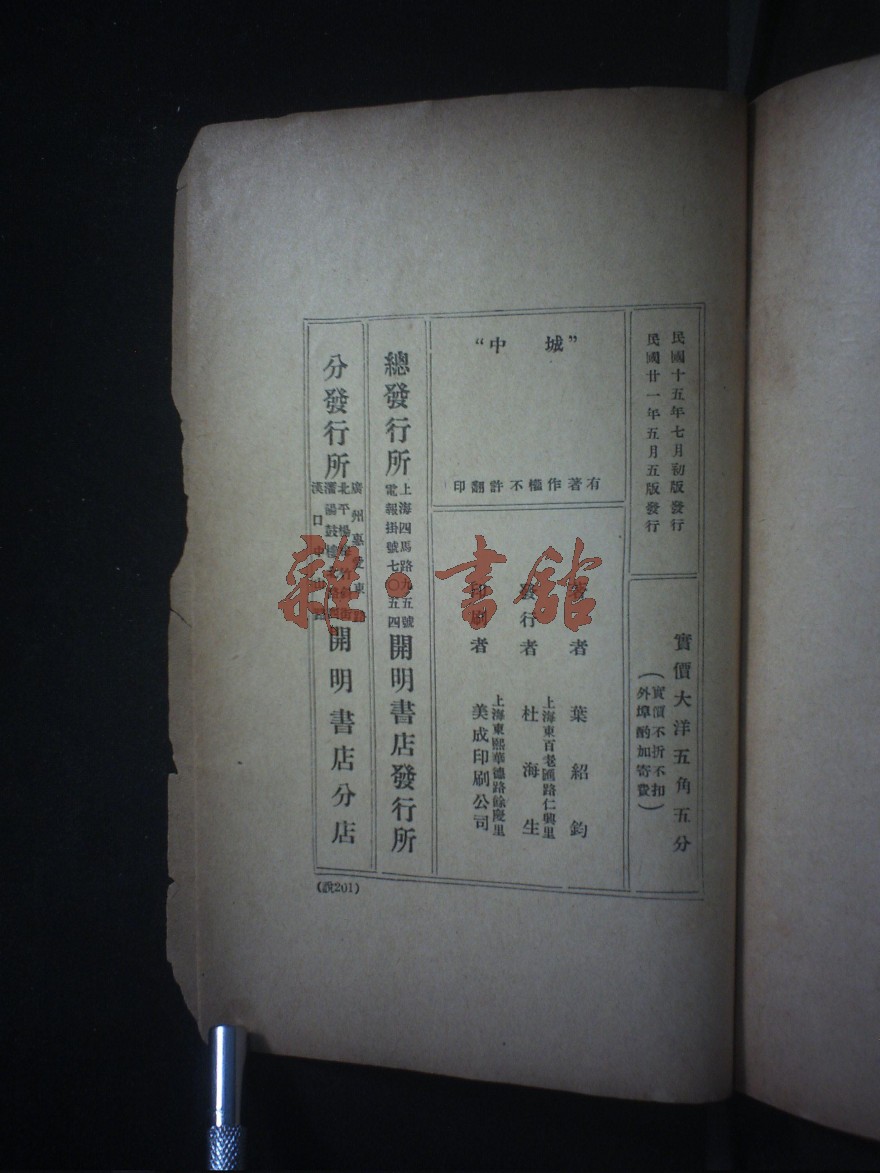 民國十五年七月初版發行
民國廿一年五月五版發行
實價大洋五角五分
（實價不折不扣
外埠酌加寄費）
“中城”
印翻許不權作著有
著者 葉紹鈞
發行者 杜海生
上海東百老匯路仁興里
印刷者 美成印刷公司
上海東熙華德路餘慶里
總發行所
上海四馬路九五號
電報掛號七〇五四
開明書店發行所
分發行所
廣州惠愛東路
北平楊梅竹斜街
瀋陽鼓樓北
漢口中山路
開明書店分店
(說201)
雜·書館